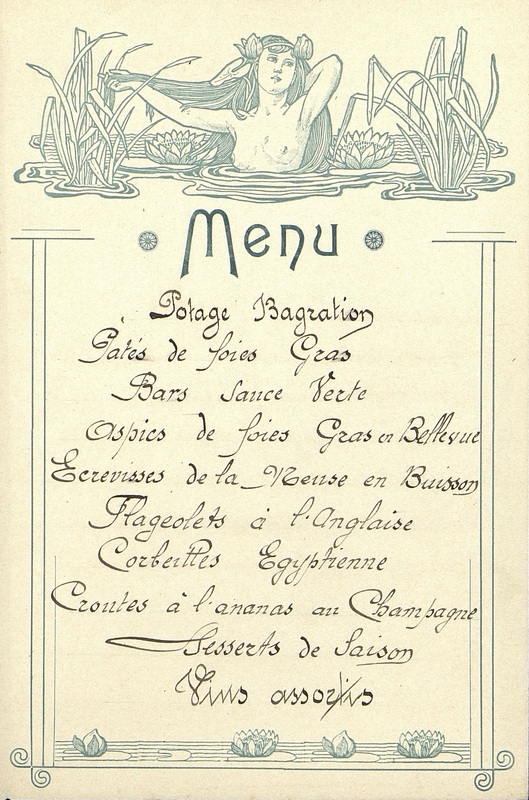 Menu
Potage Bagration
Patés de foies Gras
Bars Sauce Verte
Aspics de foies Gras en Bellevue
Ecrevisses de la Meuse en Buisson
Flageolets à l'Anglaise
Corbeilles Egyptienne
Croutes à l'ananas au Champagne
Desserts de Saison
Vins assortis